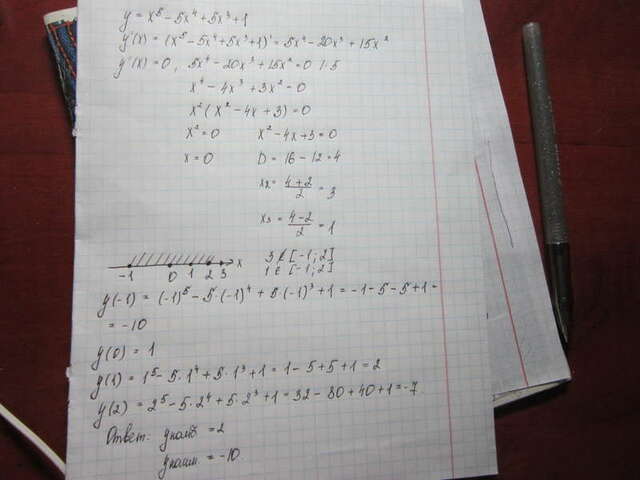 y = x⁵ - 5x⁴ + 5x³ + 1
y'(x) = (x⁵ - 5x⁴ + 5x³ + 1)' = 5x⁴ - 20x³ + 15x²
y'(x) = 0, 5x⁴ - 20x³ + 15x² = 0 |·5
x⁴ - 4x³ + 3x² = 0
x²(x² - 4x + 3) = 0
x² = 0 x² - 4x + 3 = 0
x = 0 D = 16 - 12 = 4
x₂ = (4+2)/2 = 3
x₃ = (4-2)/2 = 1
-1 0 1 2 3 x 3 ∉ [-1; 2]
1 ∈ [-1; 2]
y(-1) = (-1)⁵ - 5·(-1)⁴ + 5·(-1)³ + 1 = -1 - 5 - 5 + 1 =
= -10
y(0) = 1
y(1) = 1⁵ - 5·1⁴ + 5·1³ + 1 = 1 - 5 + 5 + 1 = 2
y(2) = 2⁵ - 5·2⁴ + 5·2³ + 1 = 32 - 80 + 40 + 1 = -7
Ответ: yнаиб = 2
yнаим = -10.